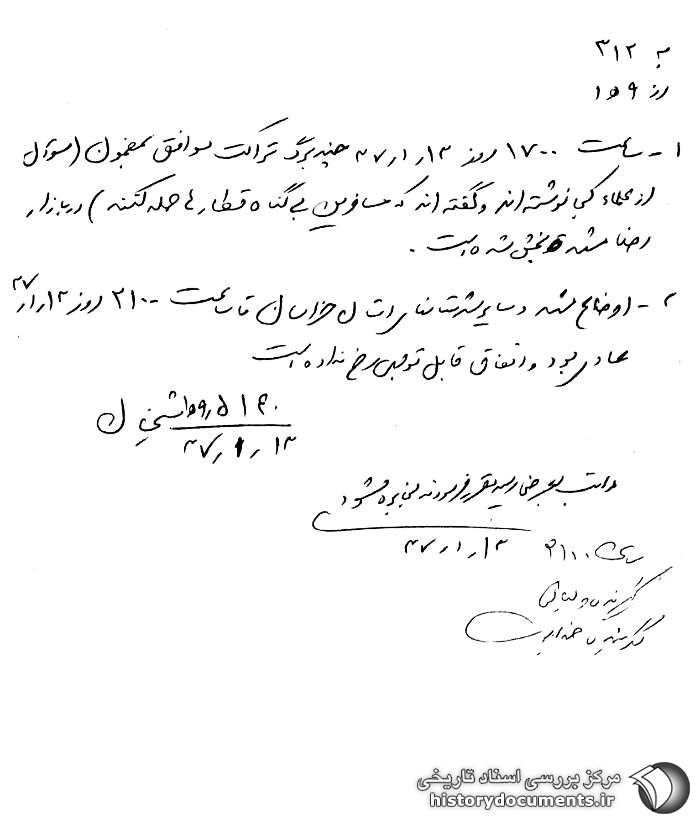 به ۳۱۲
از ۹ ه ۱
۱- ساعت ۱۷۰۰ روز ۱۳ ر ۱ ر ۴۷ چند برگ تراکت موافق بمضمون (سوال
از علماء کی نوشته‌اند و گفته‌اند که مسافرین بی گناه قطار را حمله کنند) در بازار
رضا مشهد پخش شده است.
۲- اوضاع مشهد و سایر شهرستانهای استان خراسان تا ساعت ۲۱۰۰ روز ۱۳ ر ۱ ر ۴۷
عادی بود و اتفاق قابل توجهی رخ نداده است
۱۳ ر ۱ ر ۴۷
مراتب بعرض رسید مقرر فرمودند
ساعت ۲۱۰۰ ۱۳ ر ۱ ر ۴۷
گیرنده
مرکز بررسی اسناد تاریخی
historydocuments.ir